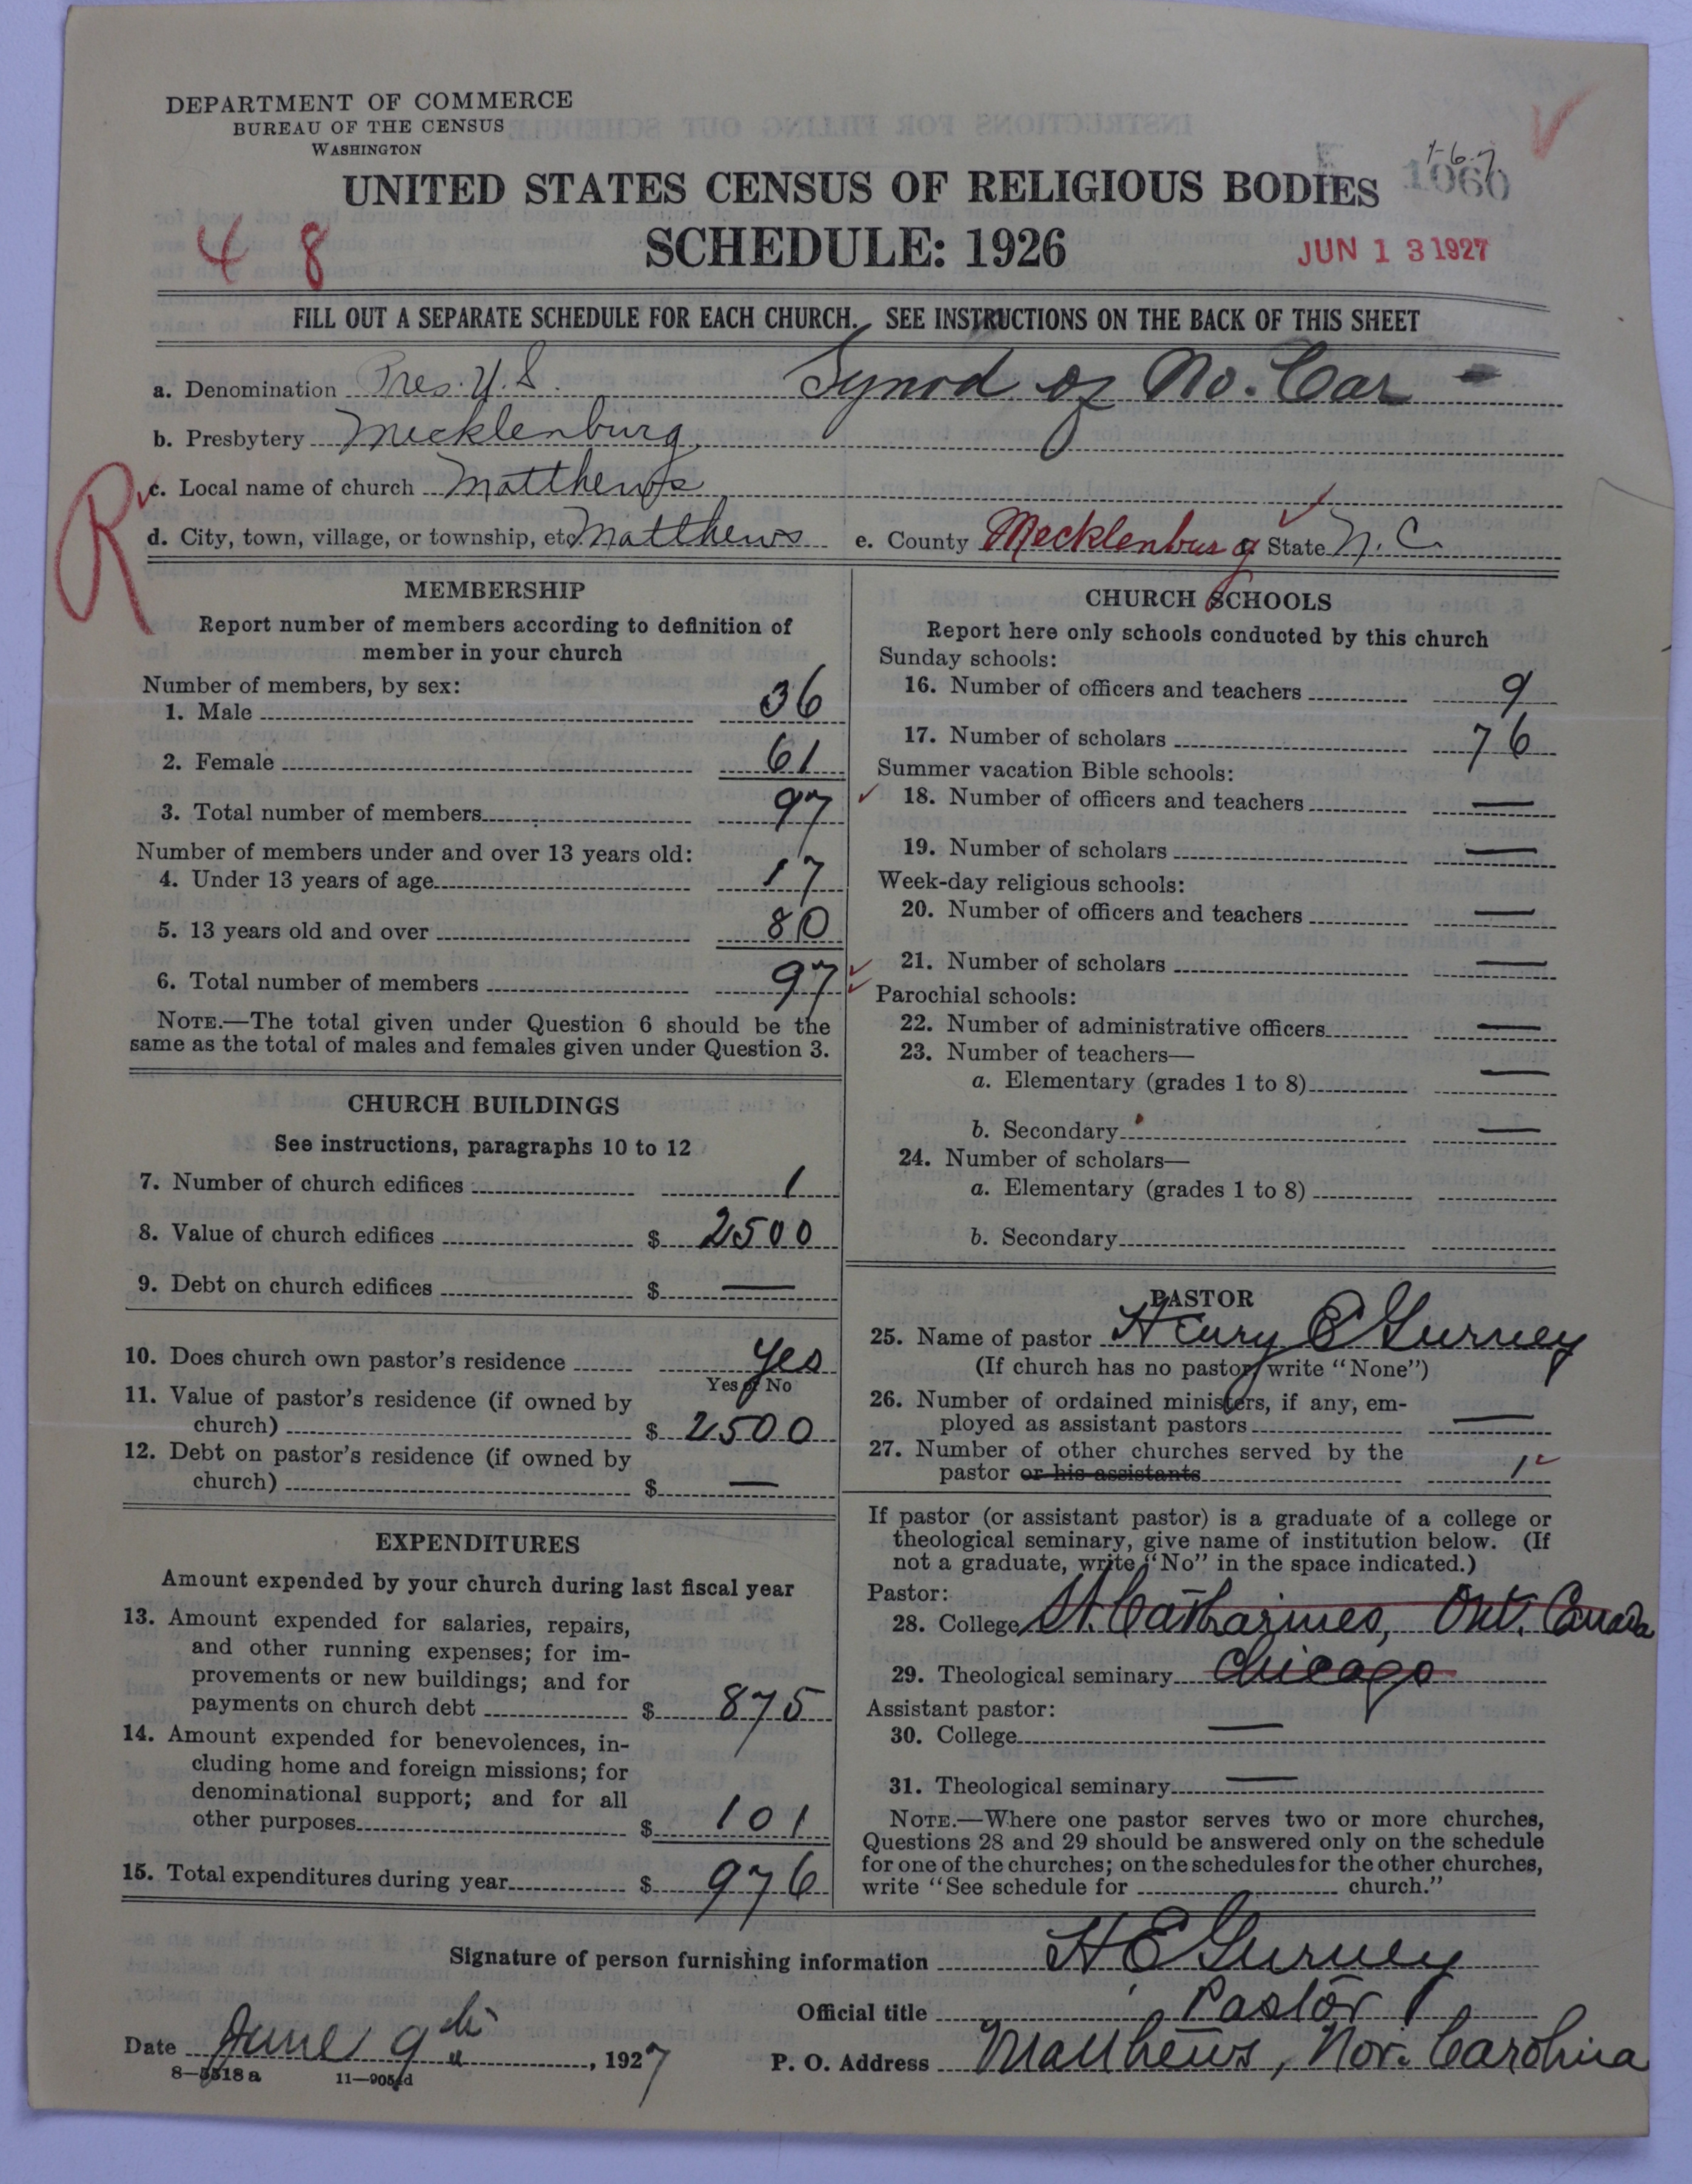 DEPARTMENT OF COMMERCE
BUREAU OF THE CENSUS
WASHINGTON
UNITED STATES CENSUS OF RELIGIOUS BODIES
1-6-7
1060
4 8
SCHEDULE: 1926
JUN 13 1927
FILL OUT A SEPARATE SCHEDULE FOR EACH CHURCH. SEE INSTRUCTIONS ON THE BACK OF THIS SHEET
a. Denomination Pres. U.S. Synod of No. Car
b. Presbytery Mecklenburg
R
c. Local name of church Matthews
d. City, town, village, or township, etc. Matthews e. County Mecklenburg State N. C.
MEMBERSHIP
Report number of members according to definition of
member in your church
Number of members, by sex:
1. Male 36
2. Female 61
3. Total number of members 97
Number of members under and over 13 years old:
4. Under 13 years of age 17
5. 13 years old and over 80
6. Total number of members 97
NOTE.—The total given under Question 6 should be the
same as the total of males and females given under Question 3.
CHURCH BUILDINGS
See instructions, paragraphs 10 to 12
7. Number of church edifices 1
8. Value of church edifices $ 2500
9. Debt on church edifices $ —
10. Does church own pastor's residence Yes
Yes or No
11. Value of pastor's residence (if owned by
church) $ 2500
12. Debt on pastor's residence (if owned by
church) $ —
EXPENDITURES
Amount expended by your church during last fiscal year
13. Amount expended for salaries, repairs,
and other running expenses; for im-
provements or new buildings; and for
payments on church debt $ 875
14. Amount expended for benevolences, in-
cluding home and foreign missions; for
denominational support; and for all
other purposes $ 101
15. Total expenditures during year $ 976
CHURCH SCHOOLS
Report here only schools conducted by this church
Sunday schools:
16. Number of officers and teachers 9
17. Number of scholars 76
Summer vacation Bible schools:
18. Number of officers and teachers —
19. Number of scholars —
Week-day religious schools:
20. Number of officers and teachers —
21. Number of scholars —
Parochial schools:
22. Number of administrative officers —
23. Number of teachers—
a. Elementary (grades 1 to 8) —
b. Secondary —
24. Number of scholars—
a. Elementary (grades 1 to 8)
b. Secondary
PASTOR
25. Name of pastor Henry E Gurney
(If church has no pastor, write "None")
26. Number of ordained ministers, if any, em-
ployed as assistant pastors —
27. Number of other churches served by the
pastor or his assistants 1
If pastor (or assistant pastor) is a graduate of a college or
theological seminary, give name of institution below. (If
not a graduate, write "No" in the space indicated.)
Pastor:
28. College St. Catharines, Ont. Canada
29. Theological seminary Chicago
Assistant pastor:
30. College —
31. Theological seminary —
NOTE.—Where one pastor serves two or more churches,
Questions 28 and 29 should be answered only on the schedule
for one of the churches; on the schedules for the other churches,
write "See schedule for church."
Signature of person furnishing information H E Gurney
Official title Pastor
Date June 9th, 1927
P. O. Address Matthews, Nor. Carolina
8—5518 a 11—9054d